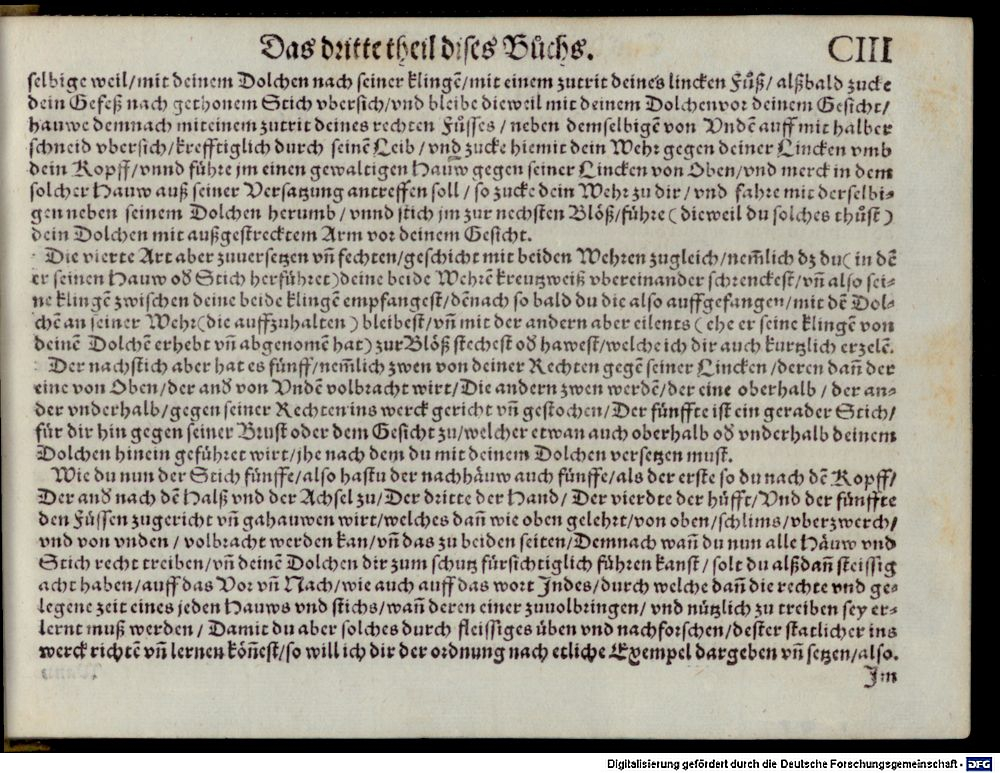 Das dritte theil dises Bůchs. CIII
selbige weil/mit deinem Dolchen nach seiner klingẽ/mit einem zutrit deines lincken Fůß/ alßbald zucke
dein Gefeß nach gethonem Stich vbersich/vnd bleibe dieweil mit deinem Dolchen vor deinem Gesicht/
hauwe demnach mit einem zutrit deines rechten Fůsses / neben demselbigẽ von Vndẽ auff mit halber
schneid vbersich/krefftiglich durch seinẽ Leib/ vnd zucke hiemit dein Wehr gegen deiner Lincken vmb
dein Kopff/vnnd führe jm einen gewaltigen Hauw gegen seiner Lincken von Oben/vnd merck in dem
solcher Hauw auß seiner Versatzung antreffen soll / so zucke dein Wehr zu dir / vnd fahre mit derselbi-
gen neben seinem Dolchen herumb / vnnd stich jm zur nechsten Blöß/führe ( dieweil du solches thůst )
dein Dolchen mit außgestrecktem Arm vor deinem Gesicht.
Die vierte Art aber zuuersetzen vñ fechten/geschicht mit beiden Wehren zugleich/nem̃lich dz du( in dẽ
er seinen Hauw oď Stich herführet)deine beide Wehrẽ kreutzweiß vbereinander schrenckest/vñ also sei-
ne klingẽ zwischen deine beide klingẽ empfangest/dẽnach so bald du die also auffgefangen/mit dẽ Dol-
chẽ an seiner Wehr(die auffzuhalten ) bleibest/vñ mit der andern aber eilents ( ehe er seine klingẽ von
deinẽ Dolchẽ erhebt vñ abgenomẽ hat) zur Blöß stechest oď hawest/welche ich dir auch kurtzlich erzelẽ.
Der nachstich aber hat es fünff/nem̃lich zwen von deiner Rechten gegẽ seiner Lincken /deren dañ der
eine von Oben/der anď von Vndẽ volbracht wirt/Die andern zwen werdẽ/der eine oberhalb / der an-
der vnderhalb/gegen seiner Rechten ins werck gericht vñ gestochen/Der fünffte ist ein gerader Stich/
für dir hin gegen seiner Brust oder dem Gesicht zu/welcher etwan auch oberhalb oď vnderhalb deinem
Dolchen hinein geführet wirt/jhe nach dem du mit deinem Dolchen versetzen must.
Wie du nun der Stich fünffe/also hastu der nachhäuw auch fünffe/als der erste so du nach dẽ Kopff/
Der anď nach dẽ Halß vnd der Achsel zu/Der dritte der Hand / Der vierdte der hüfft/Vnd der fünffte
den Füssen zugericht vñ gahauwen wirt/welches dañ wie oben gelehrt/von oben/schlims/vberzwerch/
vnd von vnden / volbracht werden kan/vñ das zu beiden seiten/Demnach wañ du nun alle Häuw vnd
Stich recht treiben/vñ deinẽ Dolchen dir zum schutz fürsichtiglich führen kanst / solt du alßdañ fleissig
acht haben/auff das Vor vñ Nach/wie auch auff das wort Indes/durch welche dañ die rechte vnd ge-
legene zeit eines jeden Hauws vnd stichs/wañ deren einer zuuolbringen/ vnd nützlich zu treiben sey er-
lernt muß werden / Damit du aber solches durch fleissiges üben vnd nachforschen/dester statlicher ins
werck richtẽ vñ lernen köñest/so will ich dir der ordnung nach etliche Exempel dargeben vñ setzen/also.
Im
Digitalisierung gefördert durch die Deutsche Forschungsgemeinschaft - DFG